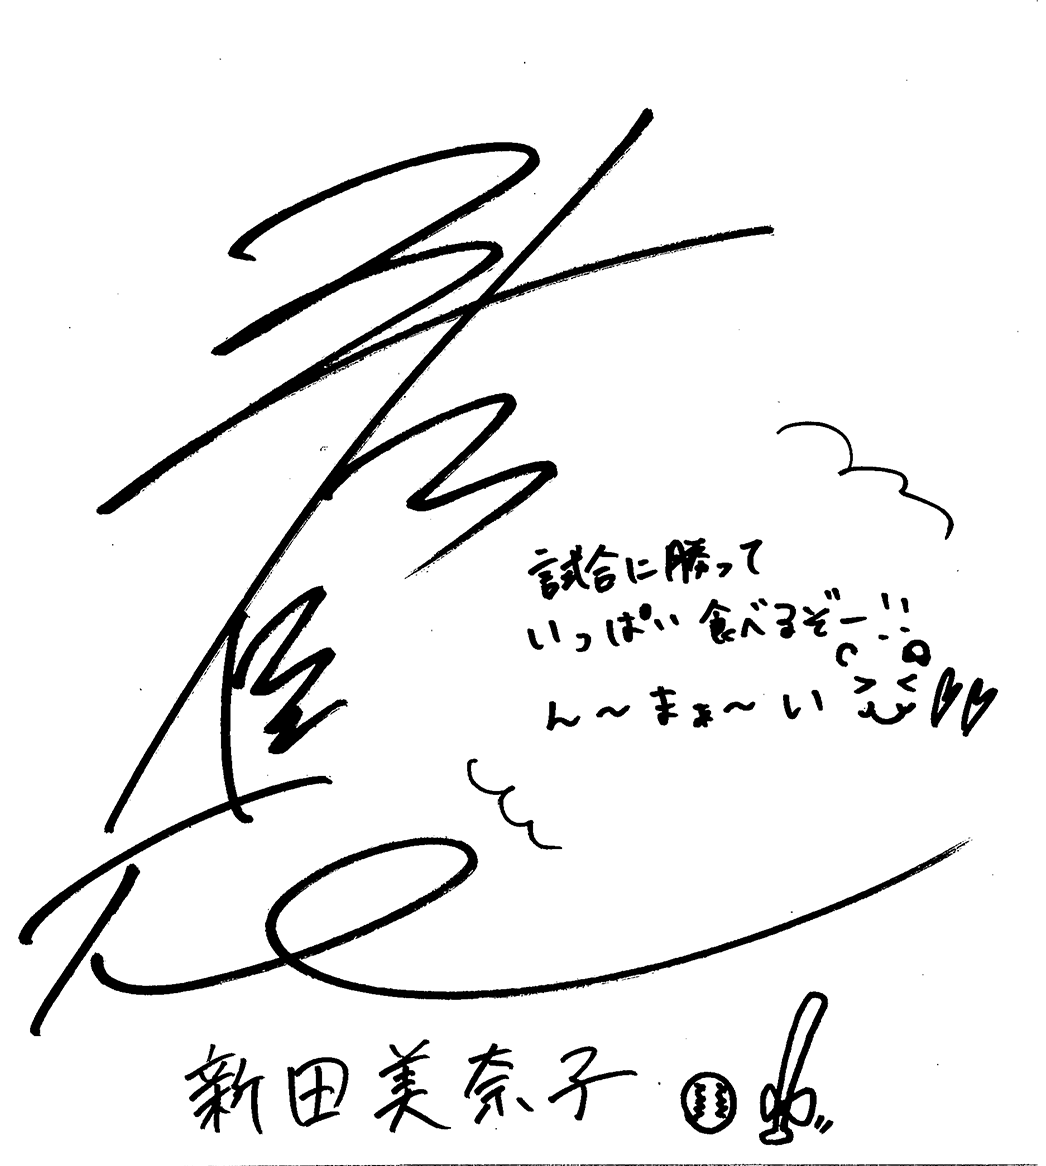 試合に勝って
いっぱい食べるぞー!!
ん～まぁ～い
新田美奈子